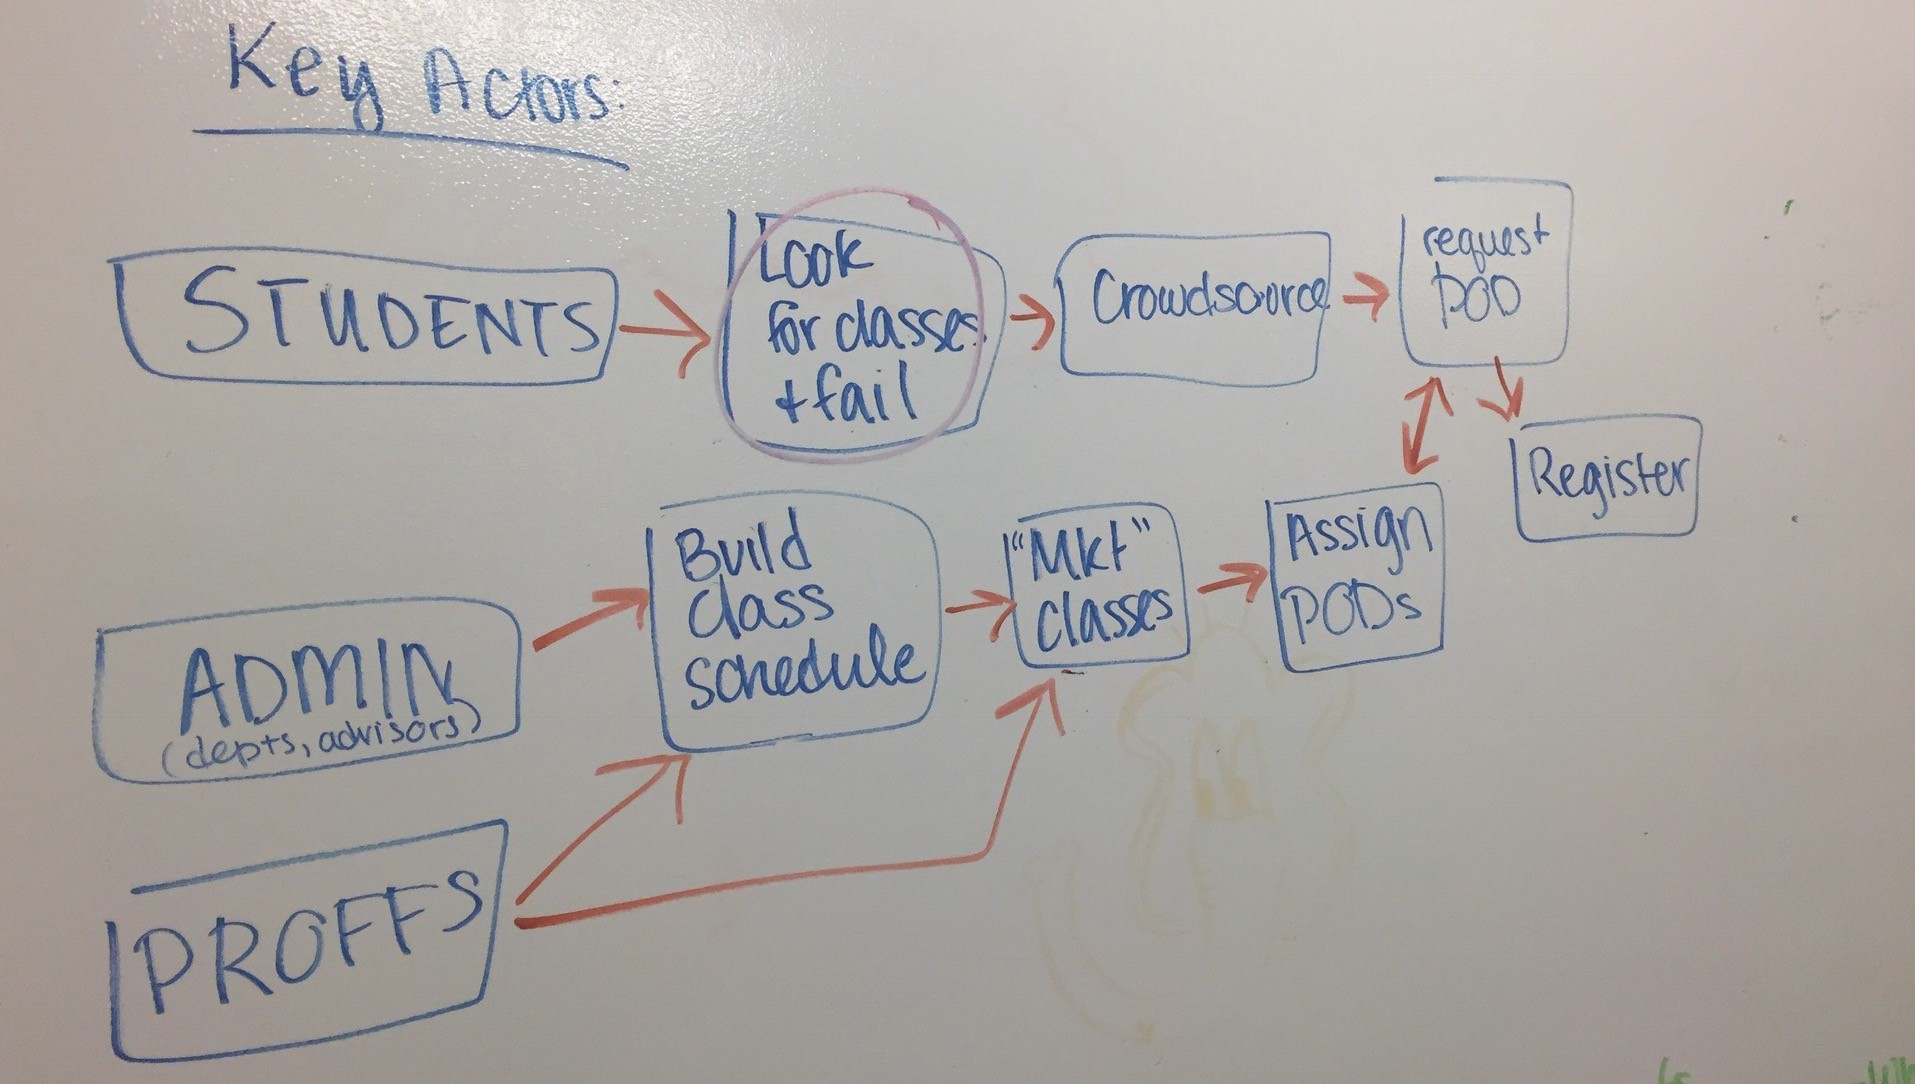 Key Actors:
STUDENTS
Look
for classes
+ fail
Crowdsource
request
POD
Register
ADMIN
(depts, advisors)
Build
class
schedule
"Mkt"
classes
Assign
PODs
PROFFS